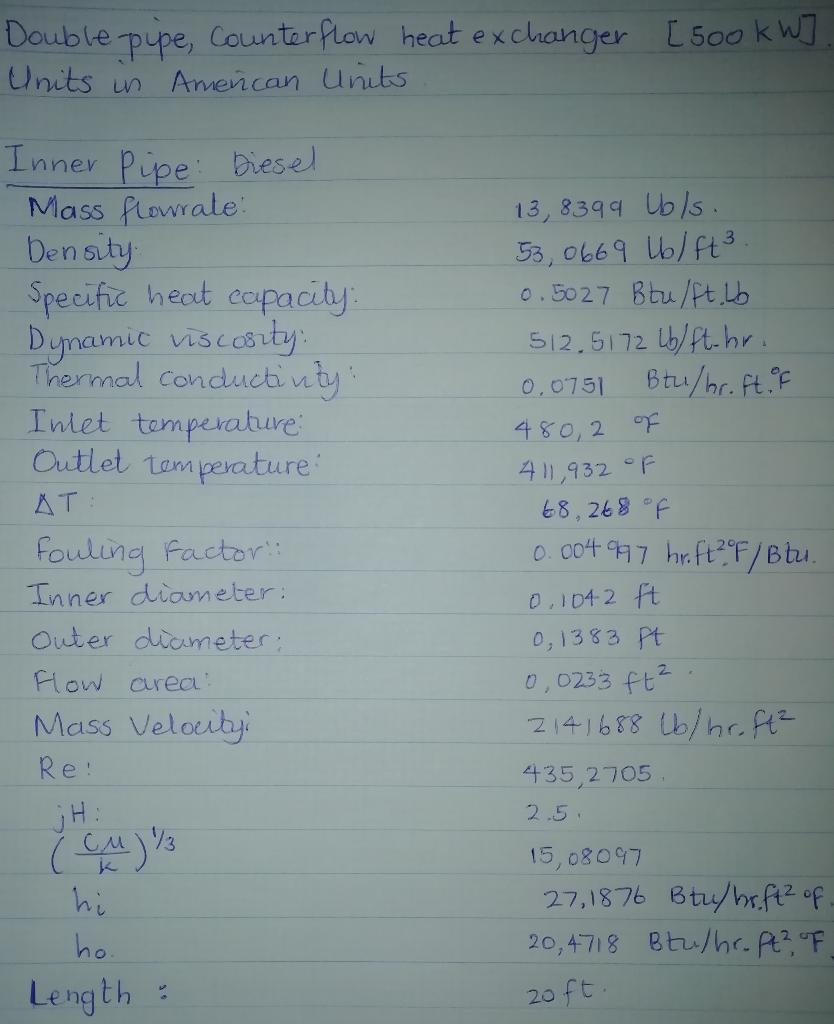 Double-pipe, Counterflow heat exchanger [500 kW].
Units in American Units.
Inner Pipe: Diesel
Mass flowrate: 13,8399 lb/s.
Density: 53,0669 lb/ft³.
Specific heat capacity: 0.5027 Btu/ft.lb
Dynamic viscosity: 512.5172 lb/ft-hr.
Thermal conductivity: 0.0751 Btu/hr.ft.°F
Inlet temperature: 480,2 °F
Outlet temperature: 411,932 °F
ΔT: 68,268 °F
Fouling Factor:: 0.004997 hr.ft²°F/Btu.
Inner diameter: 0,1042 ft
Outer diameter: 0,1383 ft
Flow area: 0,0233 ft².
Mass Velocity: 2141688 lb/hr.ft²
Re: 435,2705.
jH: 2.5.
(CM/k)^1/3 15,08097
hi 27,1876 Btu/hr.ft² °F.
ho. 20,4718 Btu/hr-ft².°F
Length : 20 ft.